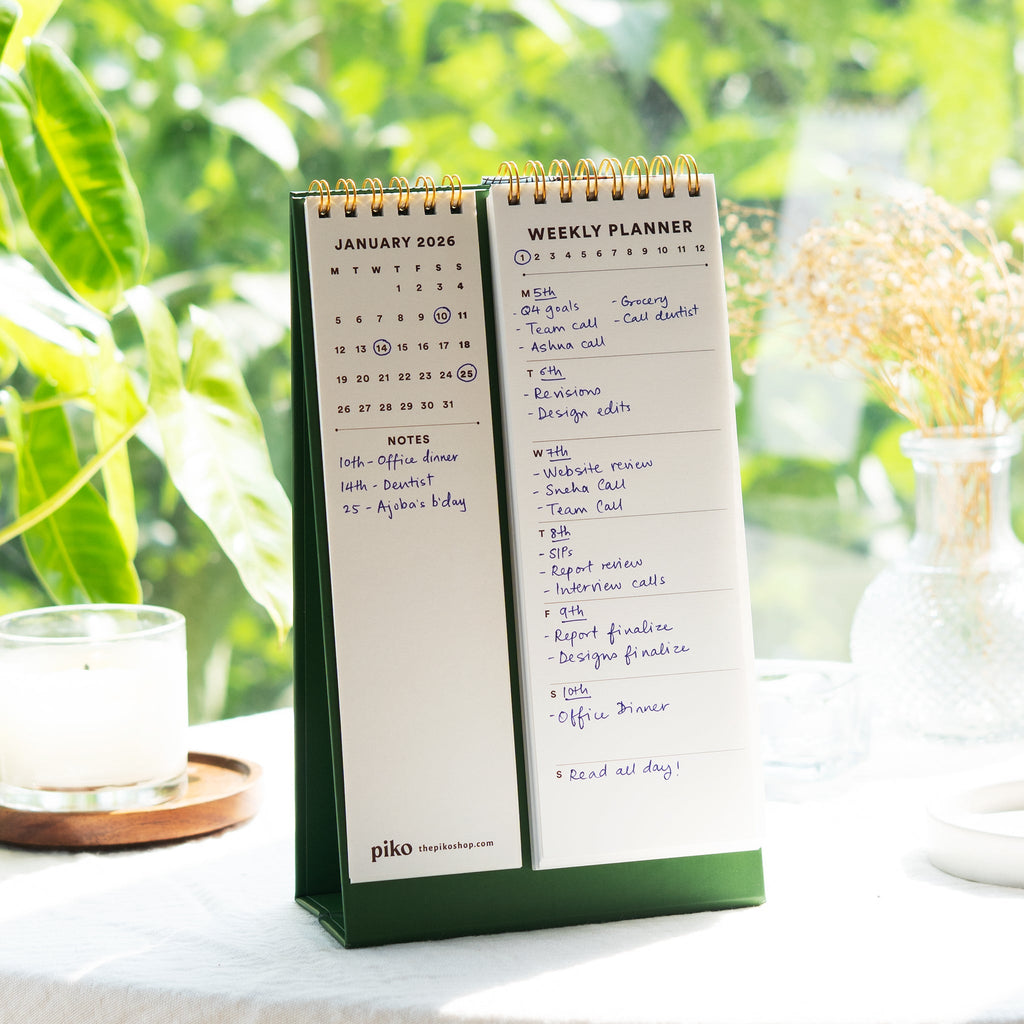 JANUARY 2026
M T W T F S S
1 2 3 4
5 6 7 8 9 10 11
12 13 14 15 16 17 18
19 20 21 22 23 24 25
26 27 28 29 30 31
NOTES
10th - Office dinner
14th - Dentist
25 - Ajoba's b'day
piko thepikoshop.com
WEEKLY PLANNER
1 2 3 4 5 6 7 8 9 10 11 12
M 5th
- Q4 goals
- Team call
- Ashna call
- Grocery
- Call dentist
T 6th
- Revisions
- Design edits
W 7th
- Website review
- Sneha Call
- Team Call
T 8th
- SIPs
- Report review
- Interview calls
F 9th
- Report finalize
- Designs finalize
S 10th
- Office Dinner
S Read all day!